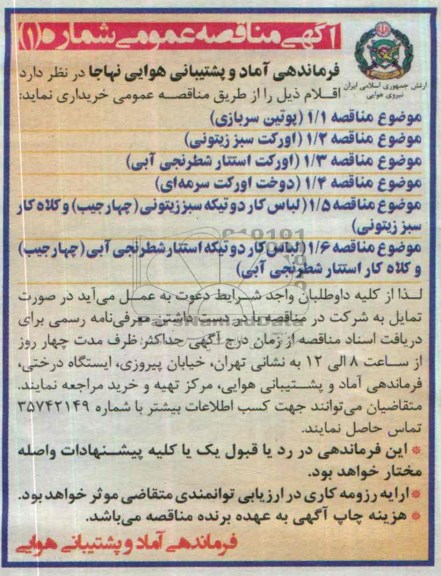 آگهی مناقصه عمومی شماره (۱)
ارتش جمهوری اسلامی ایران
نیروی هوایی
فرماندهی آماد و پشتیبانی هوایی نهاجا در نظر دارد
اقلام ذیل را از طریق مناقصه عمومی خریداری نماید:
موضوع مناقصه ۱/۱ (پوتین سربازی)
موضوع مناقصه ۱/۲ (اورکت سبز زیتونی)
موضوع مناقصه ۱/۳ (اورکت استتار شطرنجی آبی)
موضوع مناقصه ۱/۴ (دوخت اورکت سرمه‌ای)
موضوع مناقصه ۱/۵ (لباس کار دو تیکه سبز زیتونی (چهارجیب) و کلاه کار
سبز زیتونی)
موضوع مناقصه ۱/۶ (لباس کار دو تیکه استتار شطرنجی آبی (چهارجیب)
و کلاه کار استتار شطرنجی آبی)
لذا از کلیه داوطلبان واجد شرایط دعوت به عمل می‌آید در صورت
تمایل به شرکت در مناقصه با در دست داشتن معرفی‌نامه رسمی برای
دریافت اسناد مناقصه از زمان درج آگهی حداکثر ظرف مدت چهار روز
از ساعت ۸ الی ۱۲ به نشانی تهران، خیابان پیروزی، ایستگاه درختی،
فرماندهی آماد و پشتیبانی هوایی، مرکز تهیه و خرید مراجعه نمایند.
متقاضیان می‌توانند جهت کسب اطلاعات بیشتر با شماره ۳۵۷۴۲۱۴۹
تماس حاصل نمایند.
* این فرماندهی در رد یا قبول یک یا کلیه پیشنهادات واصله
مختار خواهد بود.
* ارایه رزومه کاری در ارزیابی توانمندی متقاضی موثر خواهد بود.
* هزینه چاپ آگهی به عهده برنده مناقصه می‌باشد.
فرماندهی آماد و پشتیبانی هوایی